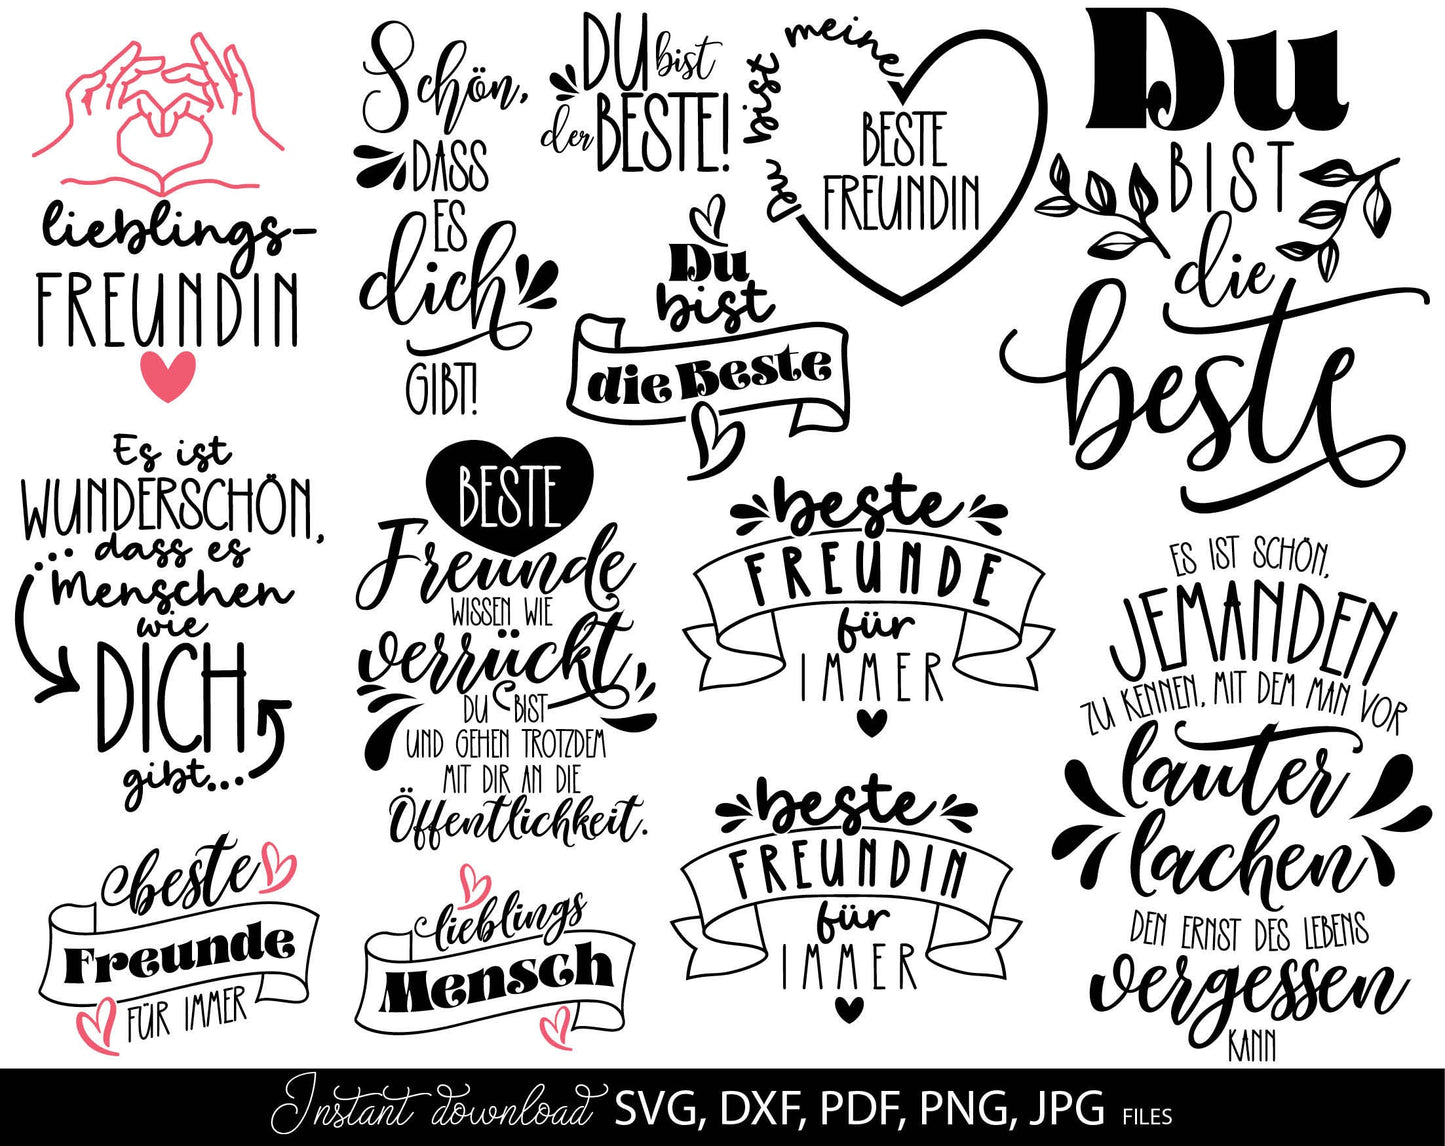 lieblings-
FREUNDIN
Schön,
DASS
ES
dich
GIBT!
DU bist
der BESTE!
Du bist meine
BESTE
FREUNDIN
Du
BIST
die
beste
Du
bist
die Beste
Es ist
WUNDERSCHÖN,
... dass es
Menschen
wie
DICH
gibt...
BESTE
Freunde
WISSEN WIE
verrückt
DU BIST
UND GEHEN TROTZDEM
MIT DIR AN DIE
Öffentlichkeit.
beste
FREUNDE
für
IMMER
ES IST SCHÖN,
JEMANDEN
ZU KENNEN, MIT DEM MAN VOR
lauter
lachen
DEN ERNST DES LEBENS
vergessen
KANN
beste
Freunde
FÜR IMMER
lieblings
Mensch
beste
FREUNDIN
für
IMMER
Instant download SVG, DXF, PDF, PNG, JPG FILES